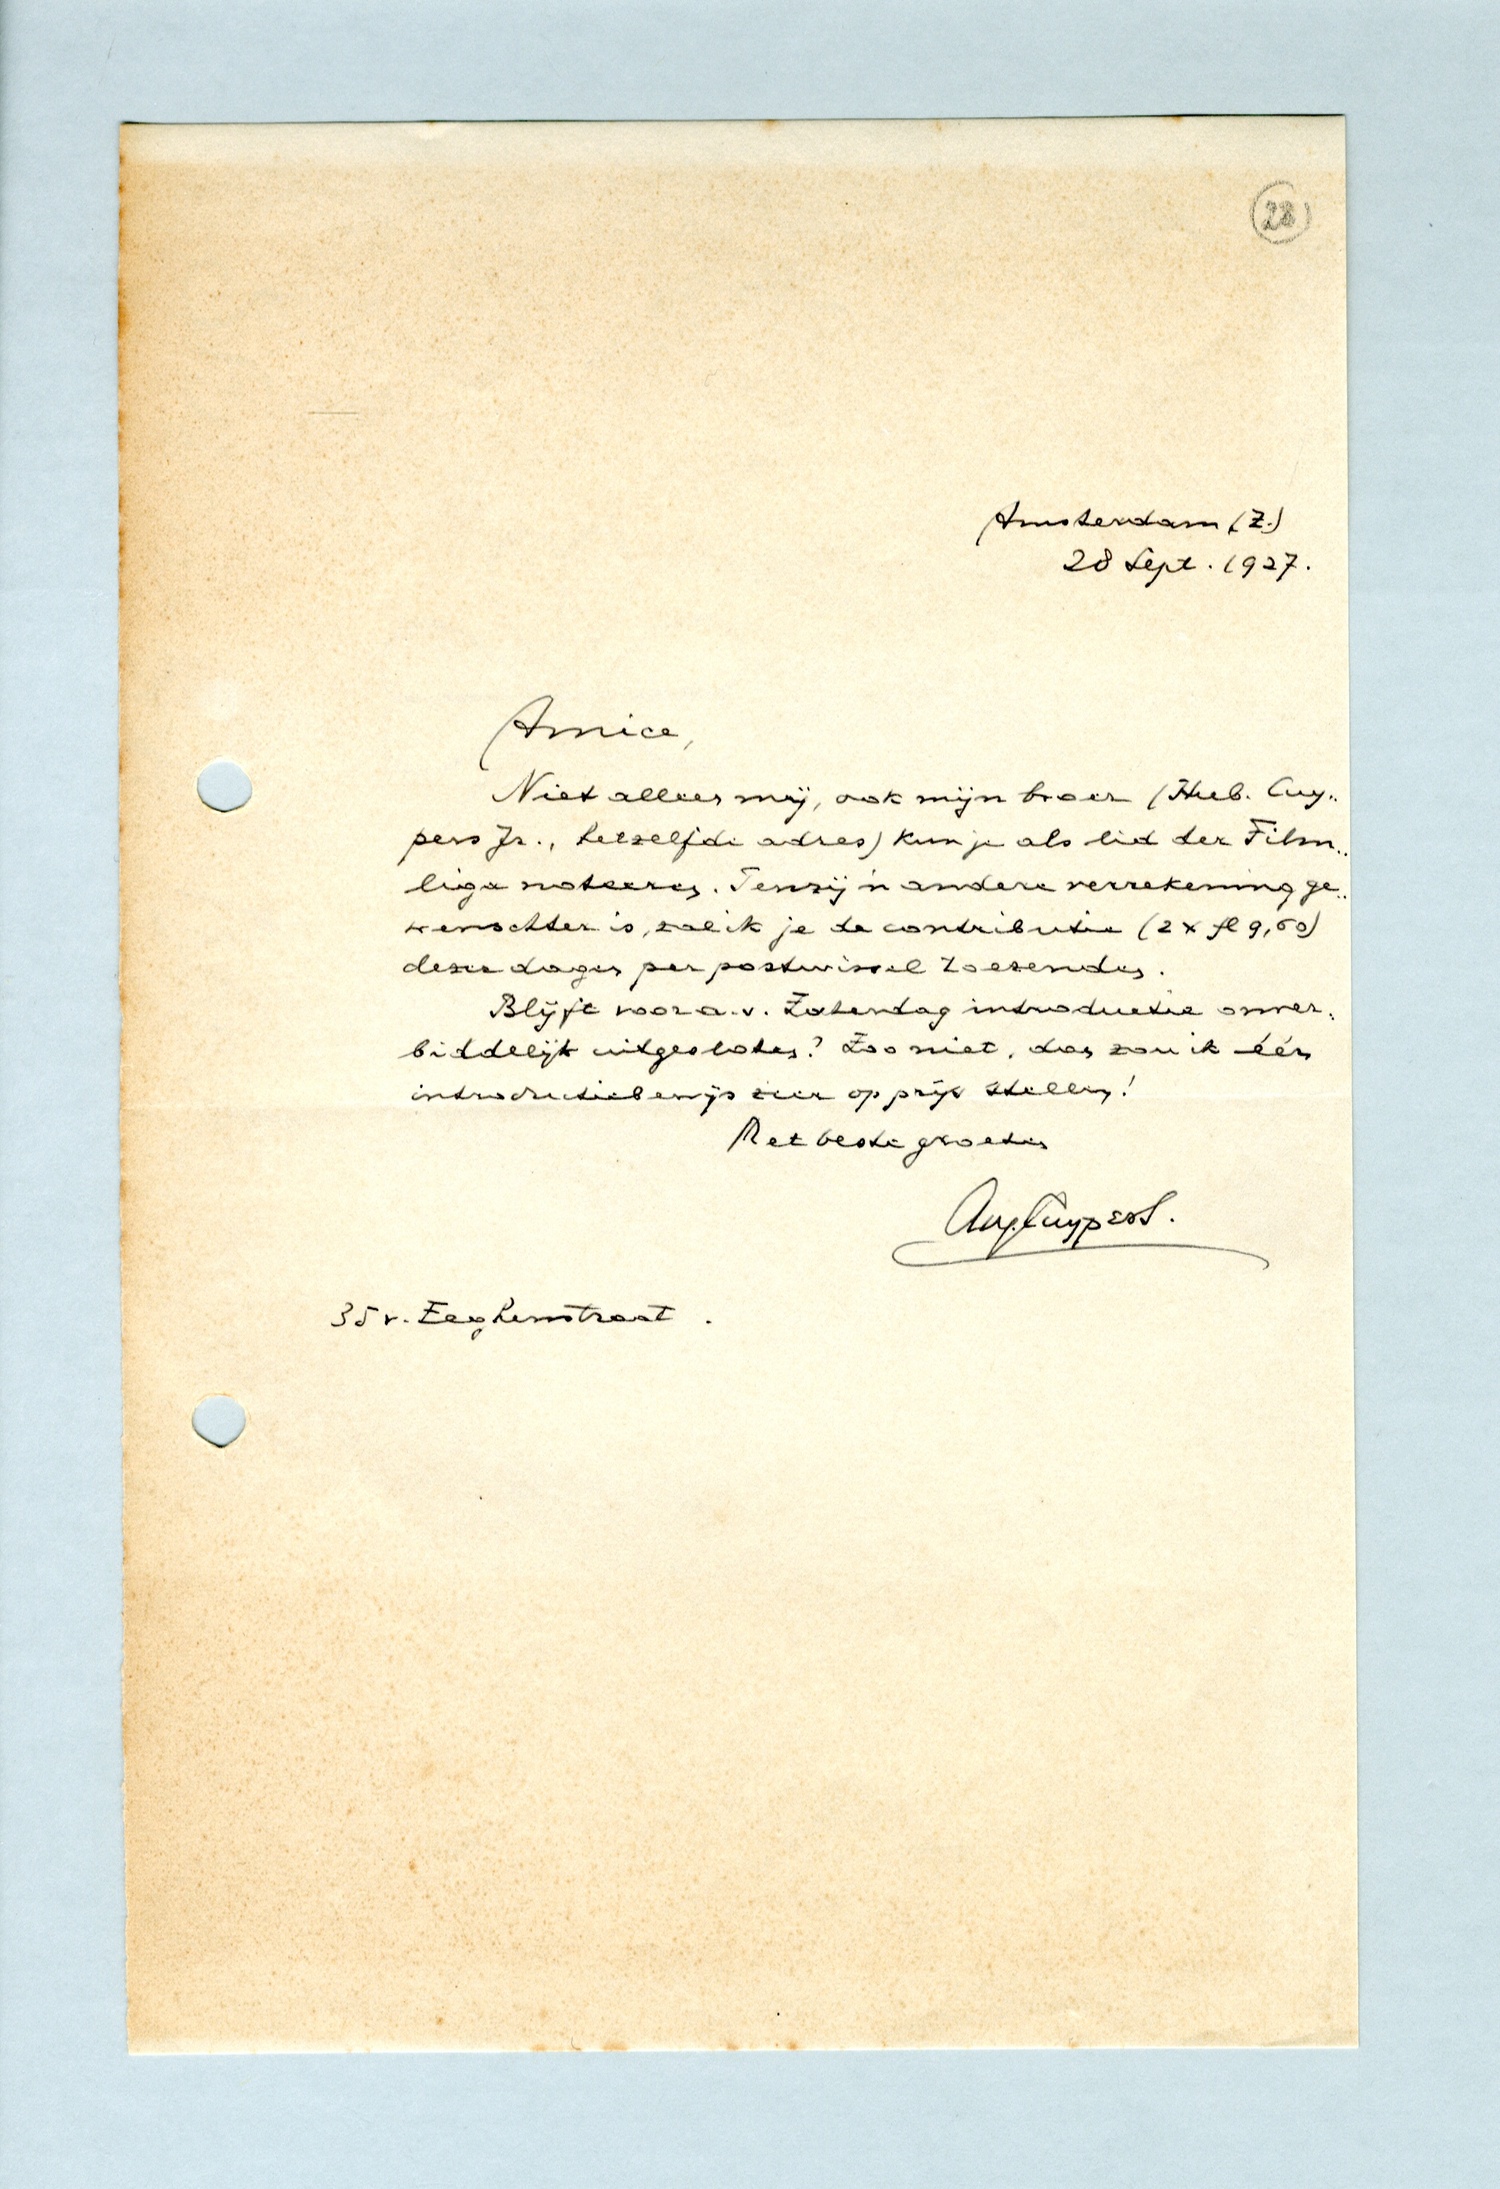 28
Amsterdam (Z.)
28 Sept. 1927.
Amice,
Niet alleen mij, ook mijn broer (Hub. Cuy-
pers Jr., hetzelfde adres) kun je als lid der Film-
liga noteeren. Tenzij 'n andere verrekening ge-
wenschter is, zal ik je de contributie (2 x fl 9,50)
dezer dagen per postwissel toezenden.
Blijft voor a.s. Zaterdag introductie onver-
biddelijk uitgesloten? Zoo niet, dan zou ik één
introductiebewijs zeer op prijs stellen!
Met beste groeten
Aug. Cuypers.
35 v. Eeghenstraat.